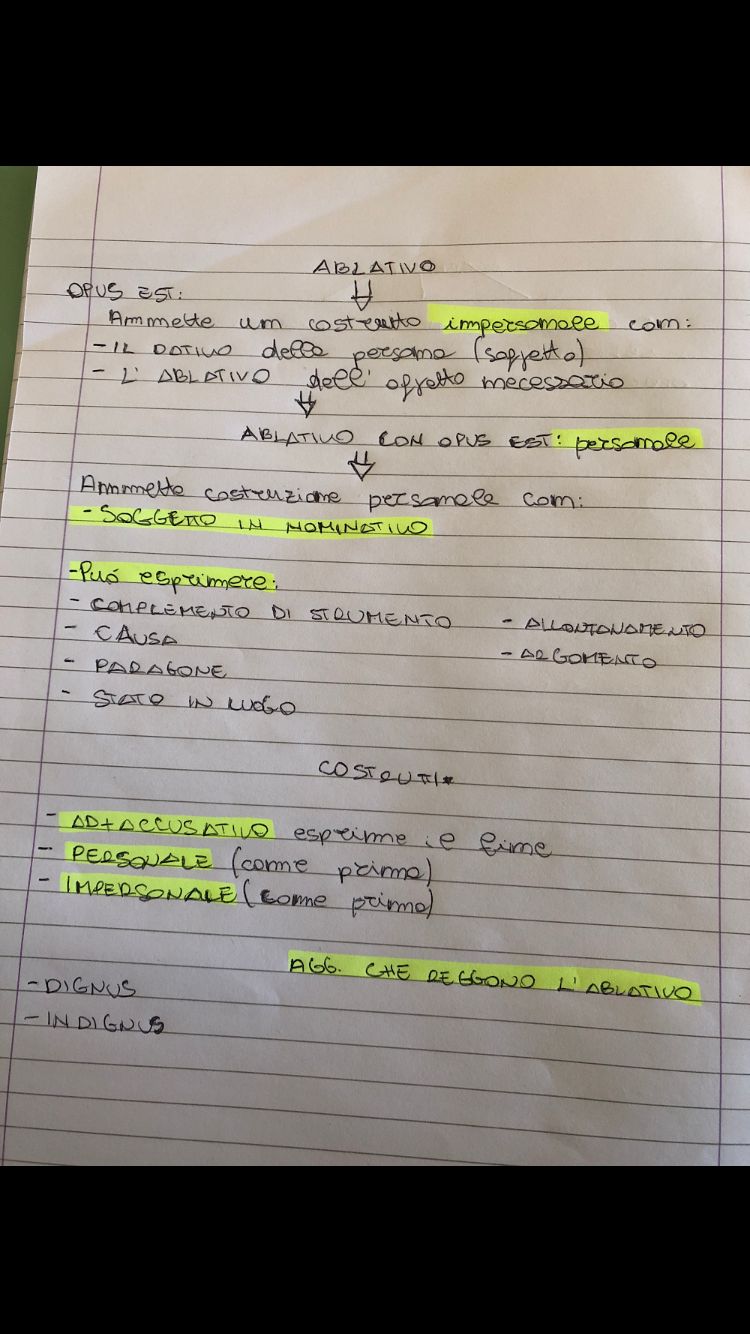 ABLATIVO
OPUS EST:
Ammette un costrutto impersonale con:
- IL DATIVO della persona (soggetto)
- L'ABLATIVO dell'oggetto necessario
ABLATIVO CON OPUS EST: personale
Ammette costruzione personale con:
- SOGGETTO IN NOMINATIVO
- Può esprimere:
- COMPLEMENTO DI STRUMENTO - ALLONTANAMENTO
- CAUSA - ARGOMENTO
- PARAGONE
- STATO IN LUOGO
COSTRUTTI
- AD+ACCUSATIVO esprime il fine
- PERSONALE (come prima)
- IMPERSONALE (come prima)
AGG. CHE REGGONO L'ABLATIVO
- DIGNUS
- INDIGNUS